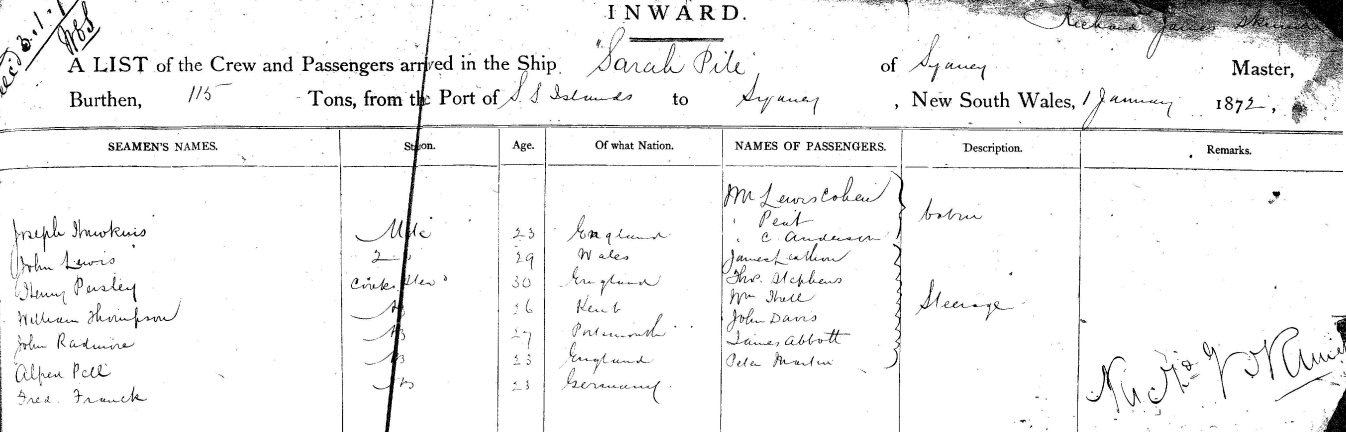 INWARD.
Richard James
A LIST of the Crew and Passengers arrived in the Ship "Sarah Pile of Sydney Master,
Burthen, 115 Tons, from the Port of S S Islands to Sydney , New South Wales, 1 January 1872,
SEAMEN'S NAMES. Station. Age. Of what Nation. NAMES OF PASSENGERS. Description. Remarks.
Mr Lewis Cohen
" Peat cabin
Joseph Hawkins Mate 23 England " C. Anderson
John Lewis 2 29 Wales James
Henry Parsley Cook & Stew 30 England Thos. Stephens
William Thompson AB 26 Kent Wm Hall Steerage
John Radmore AB 27 Portsmouth John Davis
James Abbott
Pell AB 23 England Peter Martin
Fred. Franck AB 23 Germany